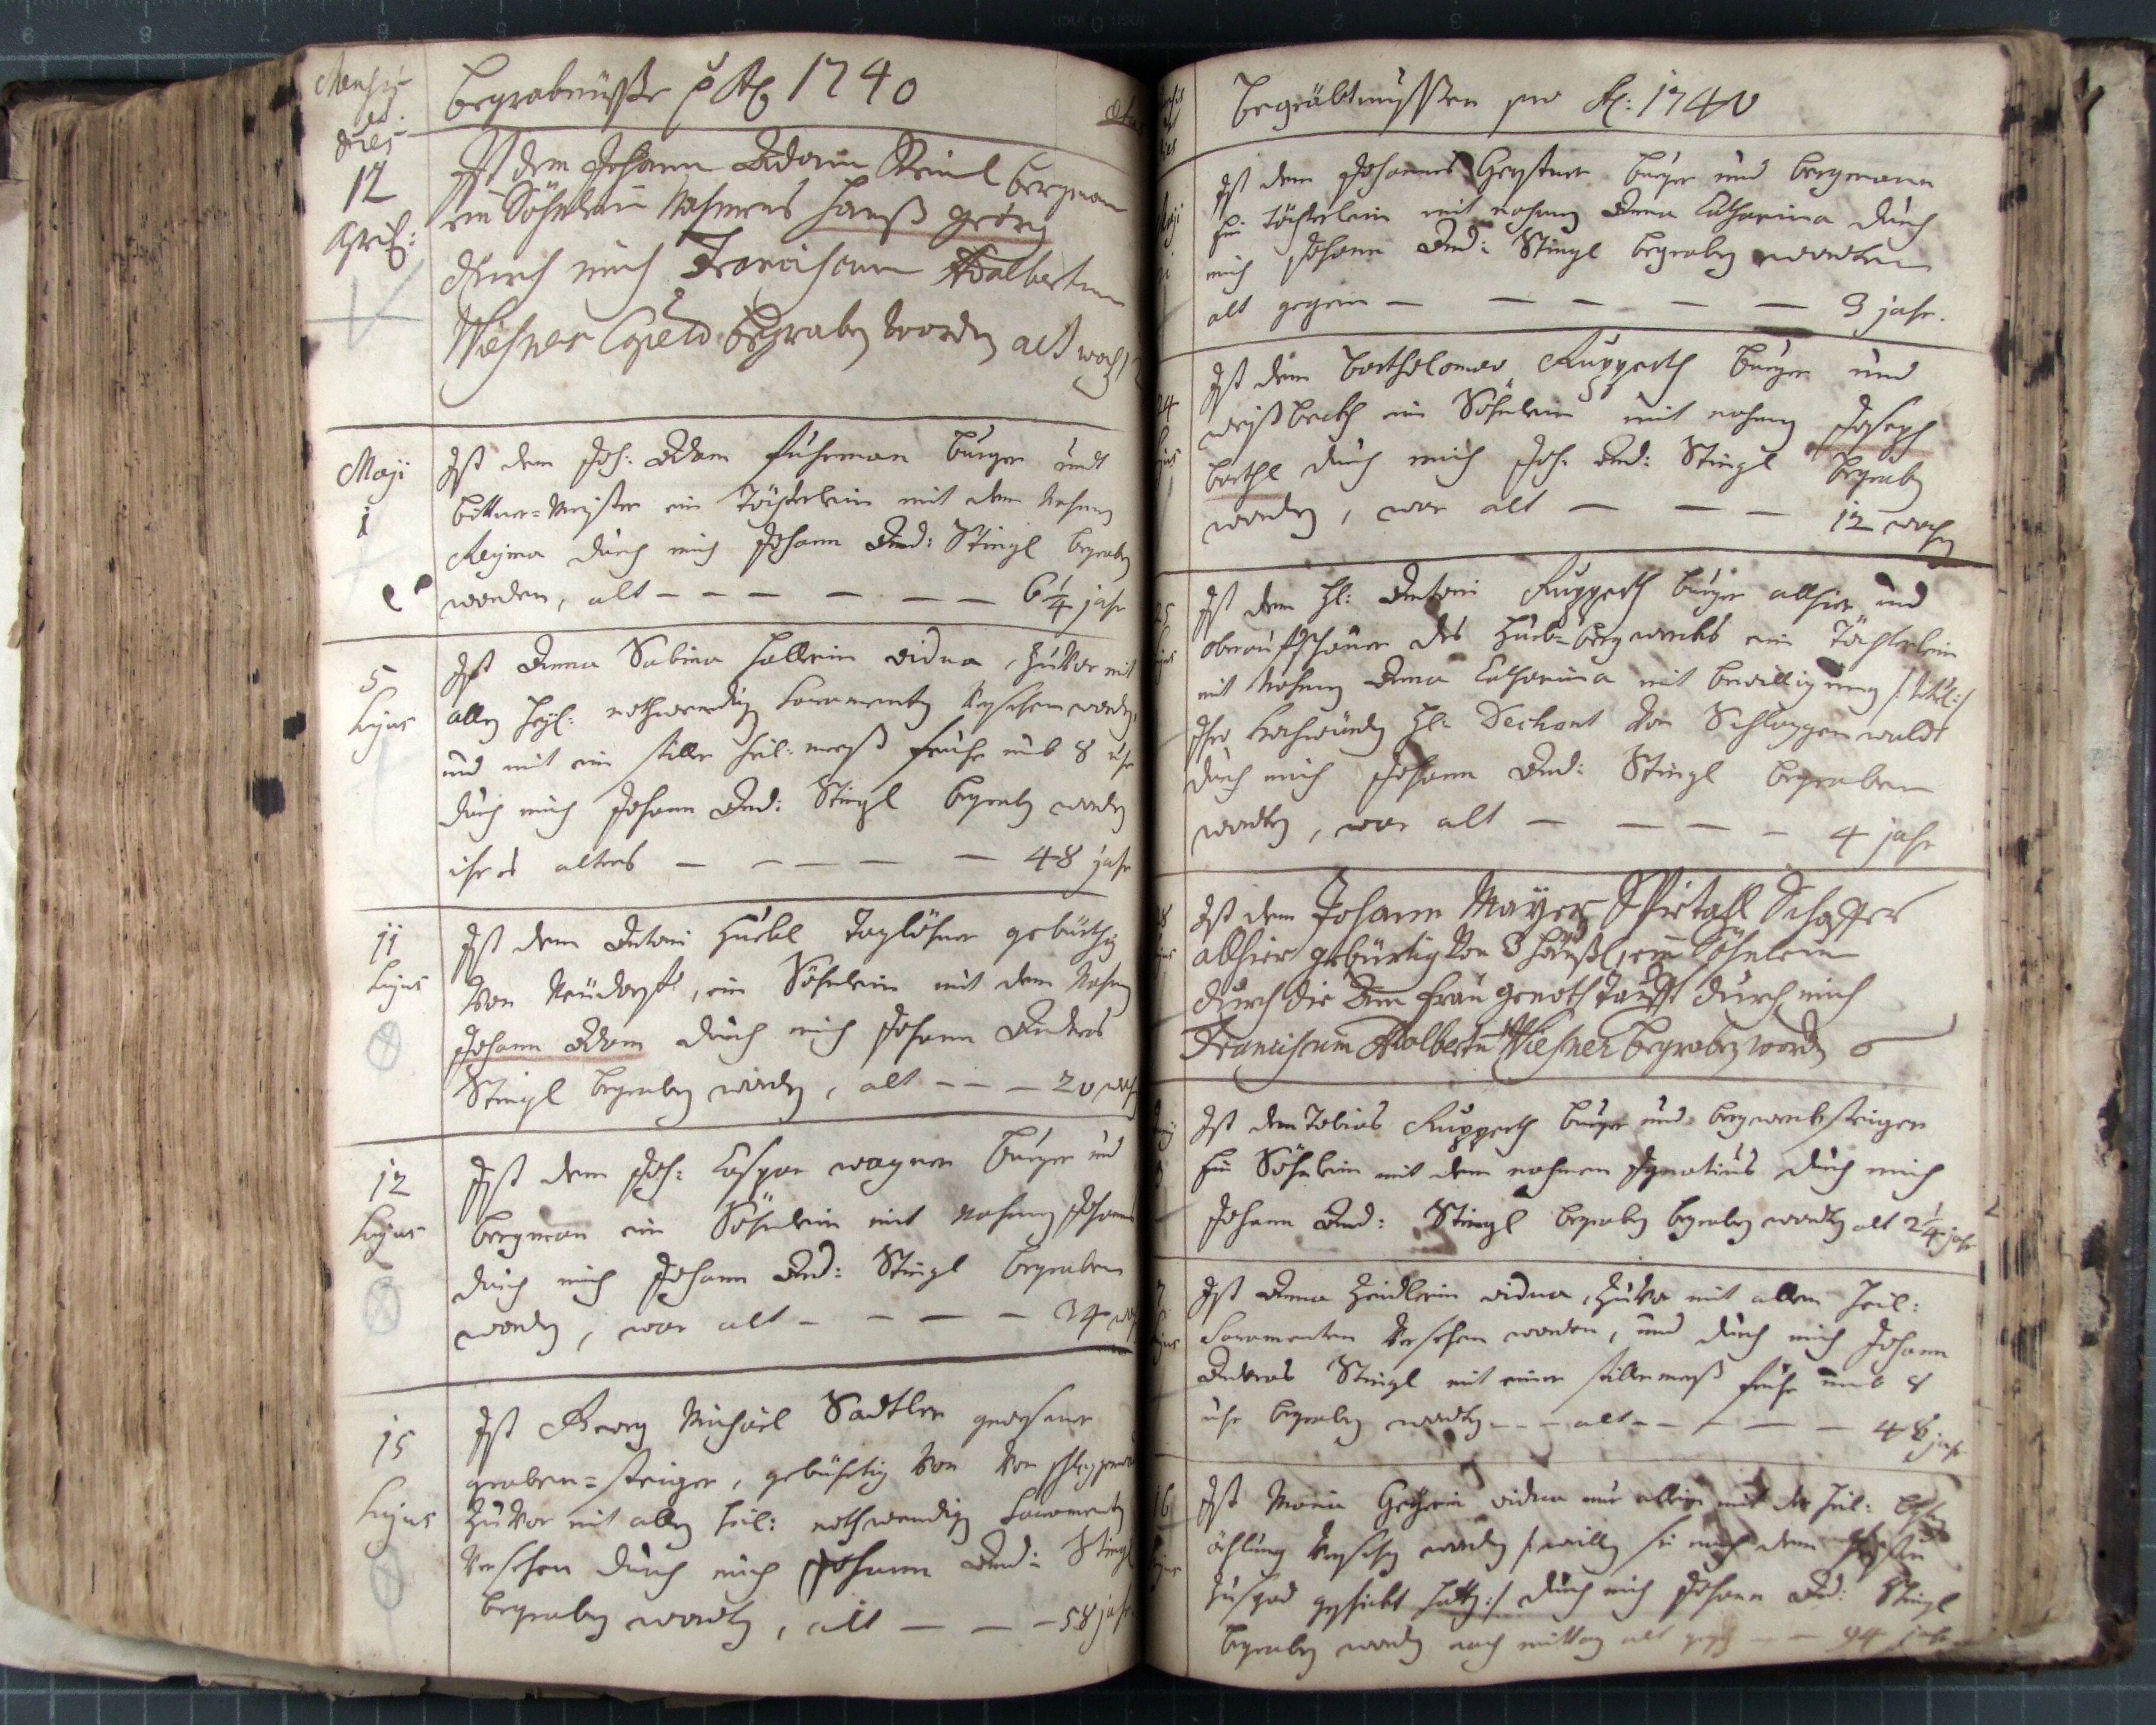 Mensis
et
dies
Begrabnüsse 1740
12
April:
Ist dem Johann Adam Bergman
ein Söhnlein Nahmens Hanß Georg
durch mich Franciscum Adalbertum
Wiesner begraben worden alt
Maji
1
Ist dem Joh: Adam fuhrman burger undt
bittner=Meister ein Töchterlein mit dem Nahmen
Regina durch mich Johann And: Stingl begraben
worden, alt — — — — — — 6 1/4 jahr
5
hujus
Ist Anna Sabina vidua, zuvor mit
allen heyl: nothwendigen Sacramenten versehen worden,
und mit ein stiller heil: meeß frühe umb 8 uhr
durch mich Johann And: Stingl begraben worden
ihres alters — — — — — 48 jahr
11
hujus
Ist dem Antoni Taglöhner gebürtig
von Neüdorff, ein Söhnlein mit dem Nahmen
Johann Adam durch mich Johann Andreas
Stingl begraben worden, alt — — — 20
12
hujus
Ist dem Joh: Caspar wagner burger und
bergman ein Söhnlein mit Nahmen Johann
durch mich Johann And: Stingl begraben
worden, war alt — — — — 34
15
hujus
Ist Georg Michael Sadtler gewesener
graben=steiger, gebürtig von
zuvor mit allen heil: nothwendigen Sacramenten
versehen durch mich Johann And: Stingl
begraben worden, alt — — — 58 jahr
Begräbtnussen pro 1740
Ist dem Johannes Gerstner burger und bergmann
ein Töchterlein mit nahmen Anna Catharina durch
mich Johann And: Stingl begraben worden
alt gegen — — — — — 3 jahr.
24
Ist dem Bartholomeo Rupperth burger und
weißbeckh ein Söhnlein mit nahmen Joseph
Barthl durch mich Joh. And: Stingl begraben
worden, war alt — — — 12 wochen
25
Ist dem Hl: Antoni Rupperth burger allhier und
des bergwercks ein Töchterlein
mit Nahmen Anna Catharina mit bewilligung
Ihro Hochwürden Hl: Dechant von Schlaggenwaldt
durch mich Johann And: Stingl begraben
worden, war alt — — — — 4 jahr
Ist dem Johann Mayer Spietall Schaffer
allhier gebürtig von ein Söhnlein
durch die frau genoth taufft durch mich
Franciscum Adalbertum Wiesner begraben worden
Ist dem Tobias Rupperth burger und bergwercksteiger
ein Söhnlein mit dem nahmen Ignatius durch mich
Johann And: Stingl begraben begraben worden alt 2 1/4 jahr
Ist Anna vidua, zuvor mit allen heil:
Sacramenten versehen worden, und durch mich Johann
Andreas Stingl mit einer stillemeß frühe umb 8
uhr begraben worden — — — alt — — — — — 48 jahr
16
Ist Maria vidua nur allein mit der heil:
öhlung versehen worden
durch mich Johann And: Stingl
begraben worden nach mittag alt — — 94 jahr